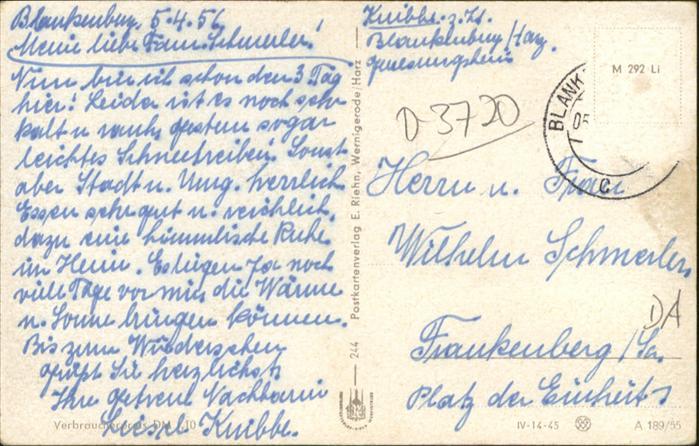 Blankenburg, 5.4.56
Meine liebe Fam. Schmerler!
Nun bin ich schon den 3 Tag
hier! Leider ist es noch sehr
kalt u. rauh, gestern sogar
leichtes Schneetreiben. Sonst
aber Stadt u. Umg. herrlich
Essen sehr gut u. reichlich,
dazu eine himmlische Ruhe
im Heim. Es liegen ja noch
viele Tage vor mir, die Wärme
u. Sonne bringen können.
Bis zum Wiedersehen
grüßt Sie herzlichst
Ihre getreue Nachbarin
Liesel Knibbe.
Verbraucherpreis DM 0,10
244 Postkartenverlag E. Riehn, Wernigerode/Harz
Knibbe. z. Zt.
Blankenburg/Harz
Genesungsheim
D-3720
M 292 Li
BLANK
05
C
Herrn u. Frau
Wilhelm Schmerler
DA
Frankenberg/Sa.
Platz der Einheit 5
IV-14-45
A 189/55